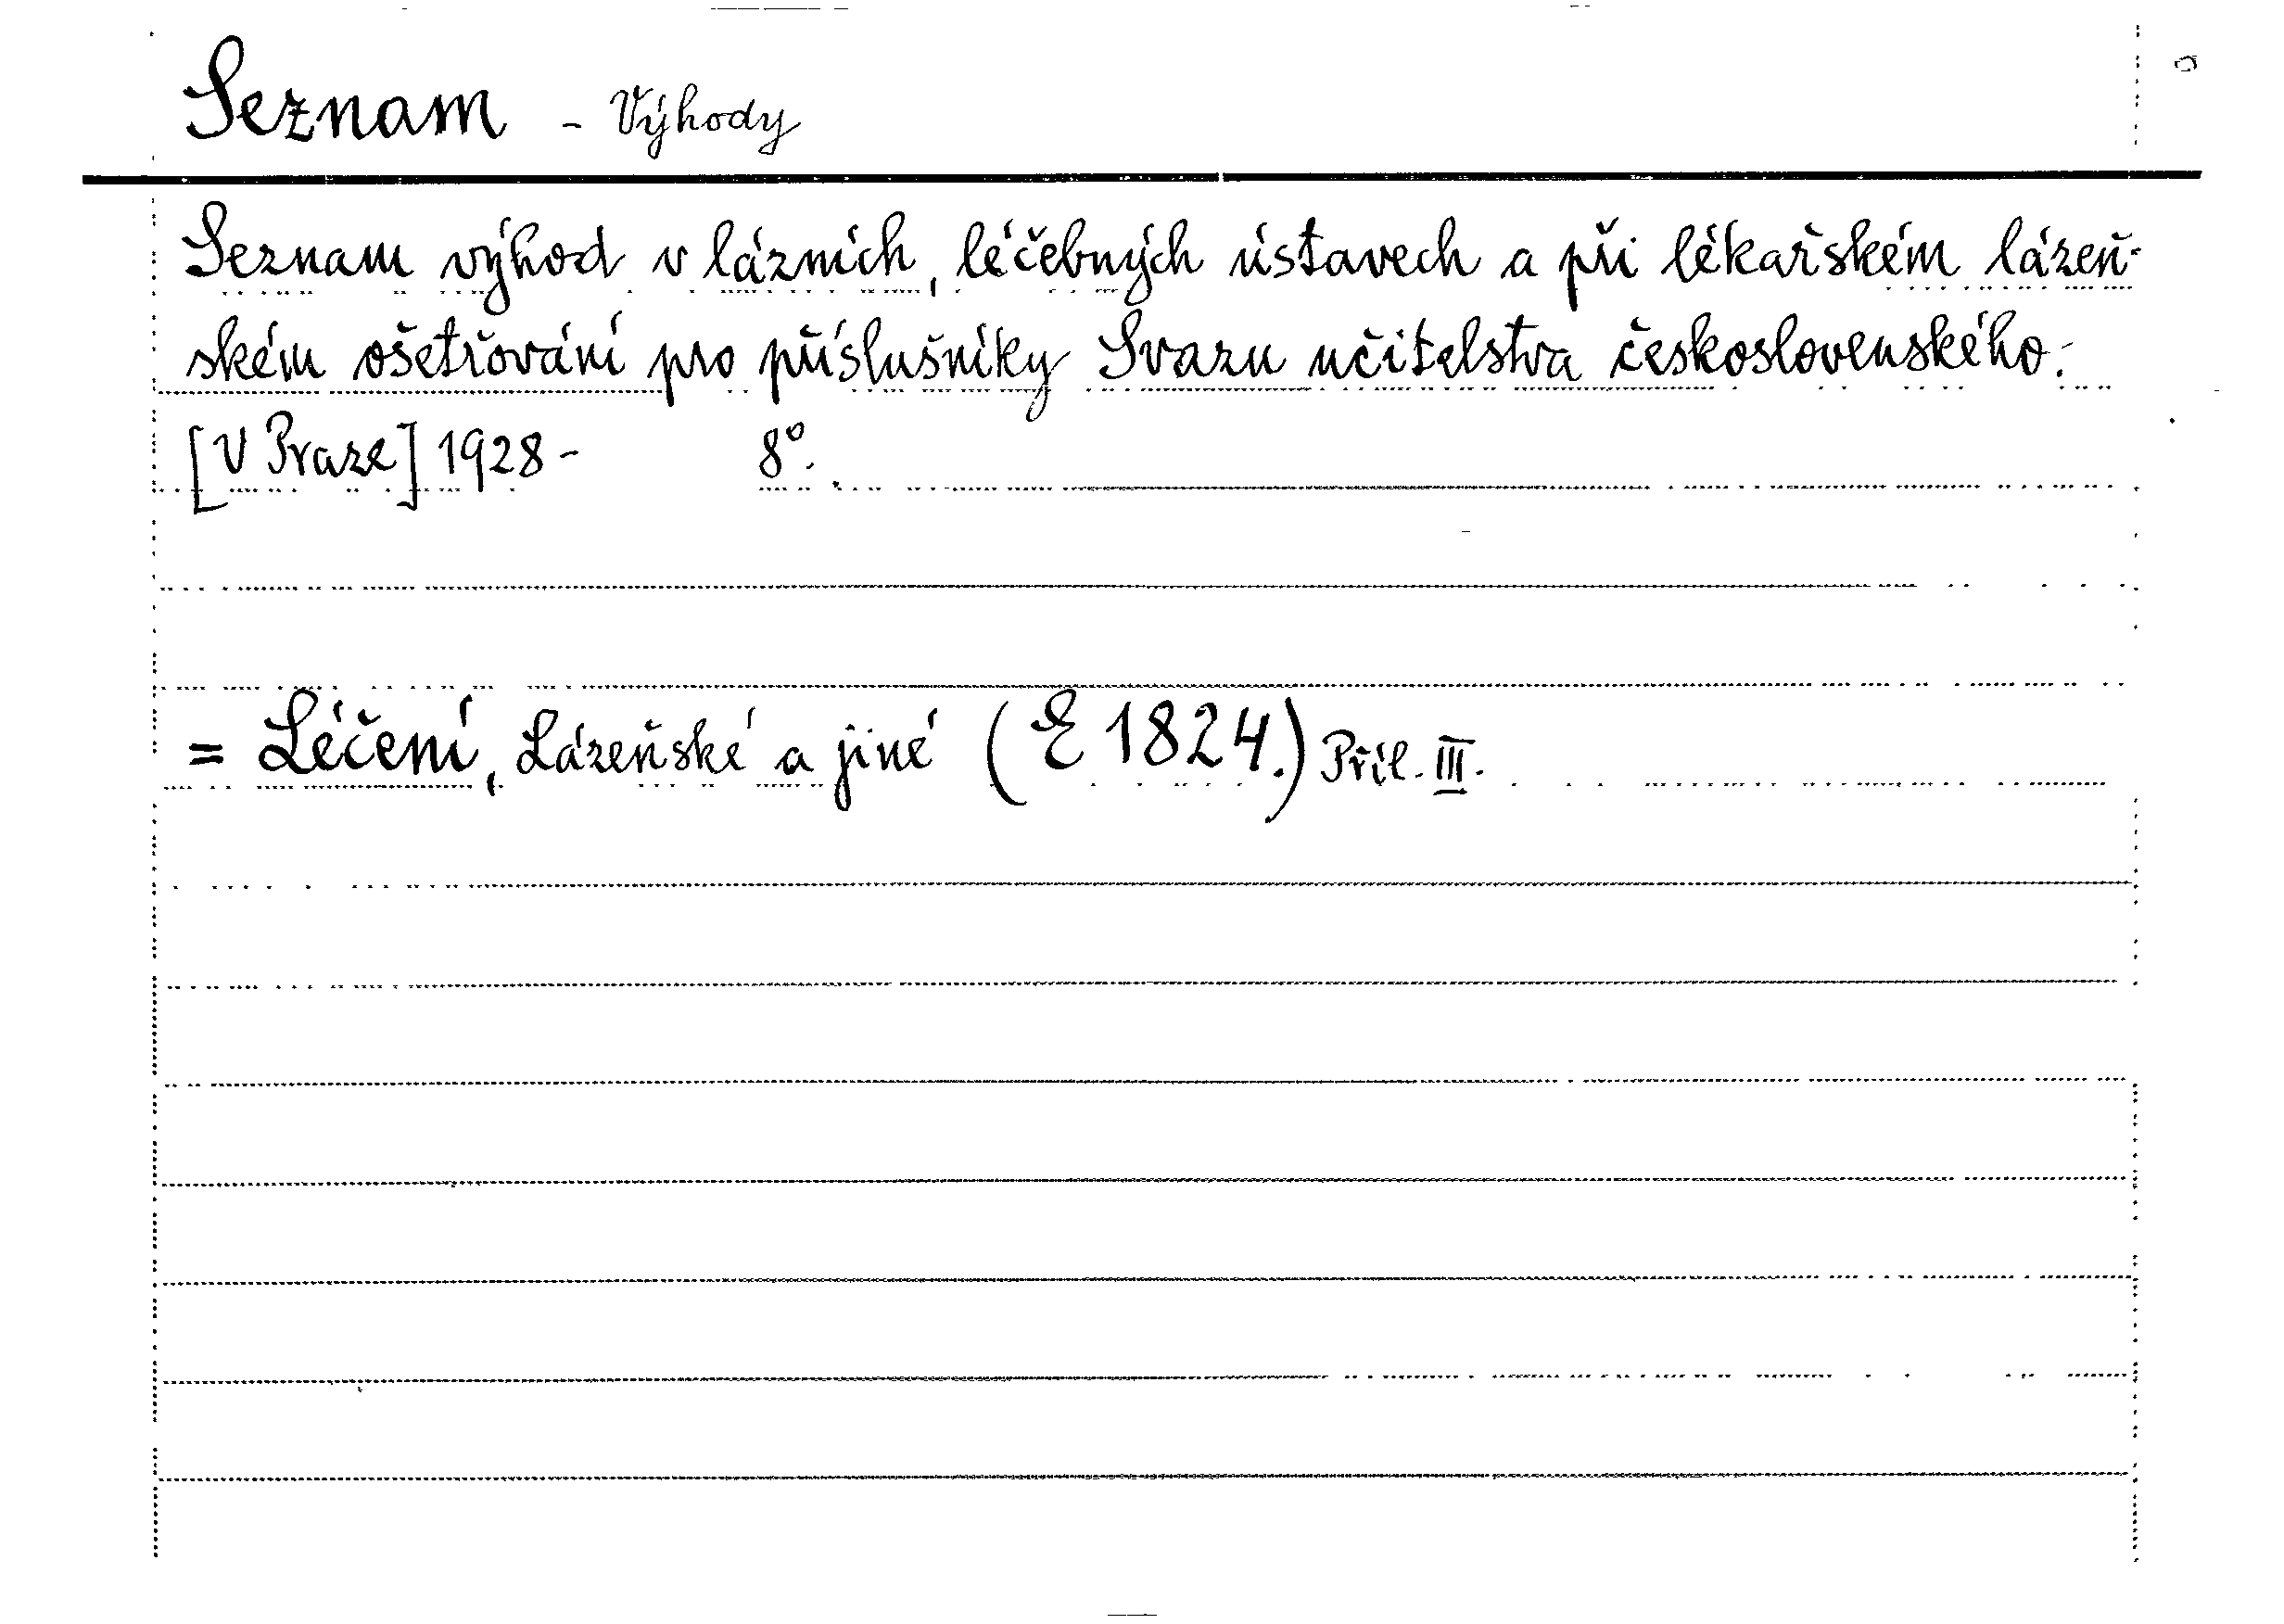 Seznam - Výhody
Seznam výhod v lázních, léčebných ústavech a při lékařském lázeň-
ském ošetřování pro příslušníky Svazu učitelstva československého.-
[V Praze] 1928 - 8°.
= Léčení, Lázeňské a jiné (E 1824.) Příl. III.